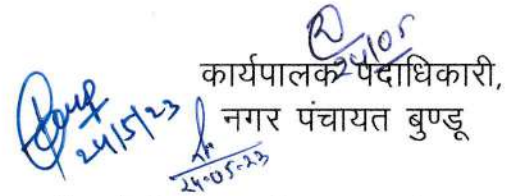 24/05
कार्यपालक पदाधिकारी,
नगर पंचायत बुण्डू
24/5/23
24-05-23